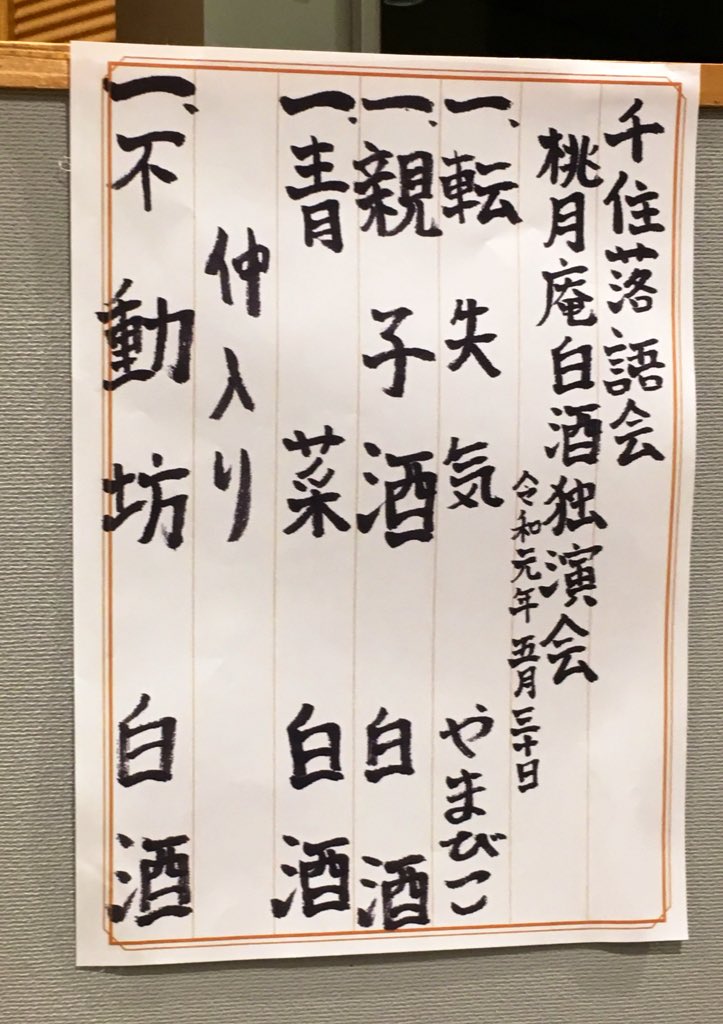 千住落語会
桃月庵白酒独演会
令和元年五月三十日
一、転失気 やまびこ
一、親子酒 白酒
一、青菜 白酒
仲入り
一、不動坊 白酒